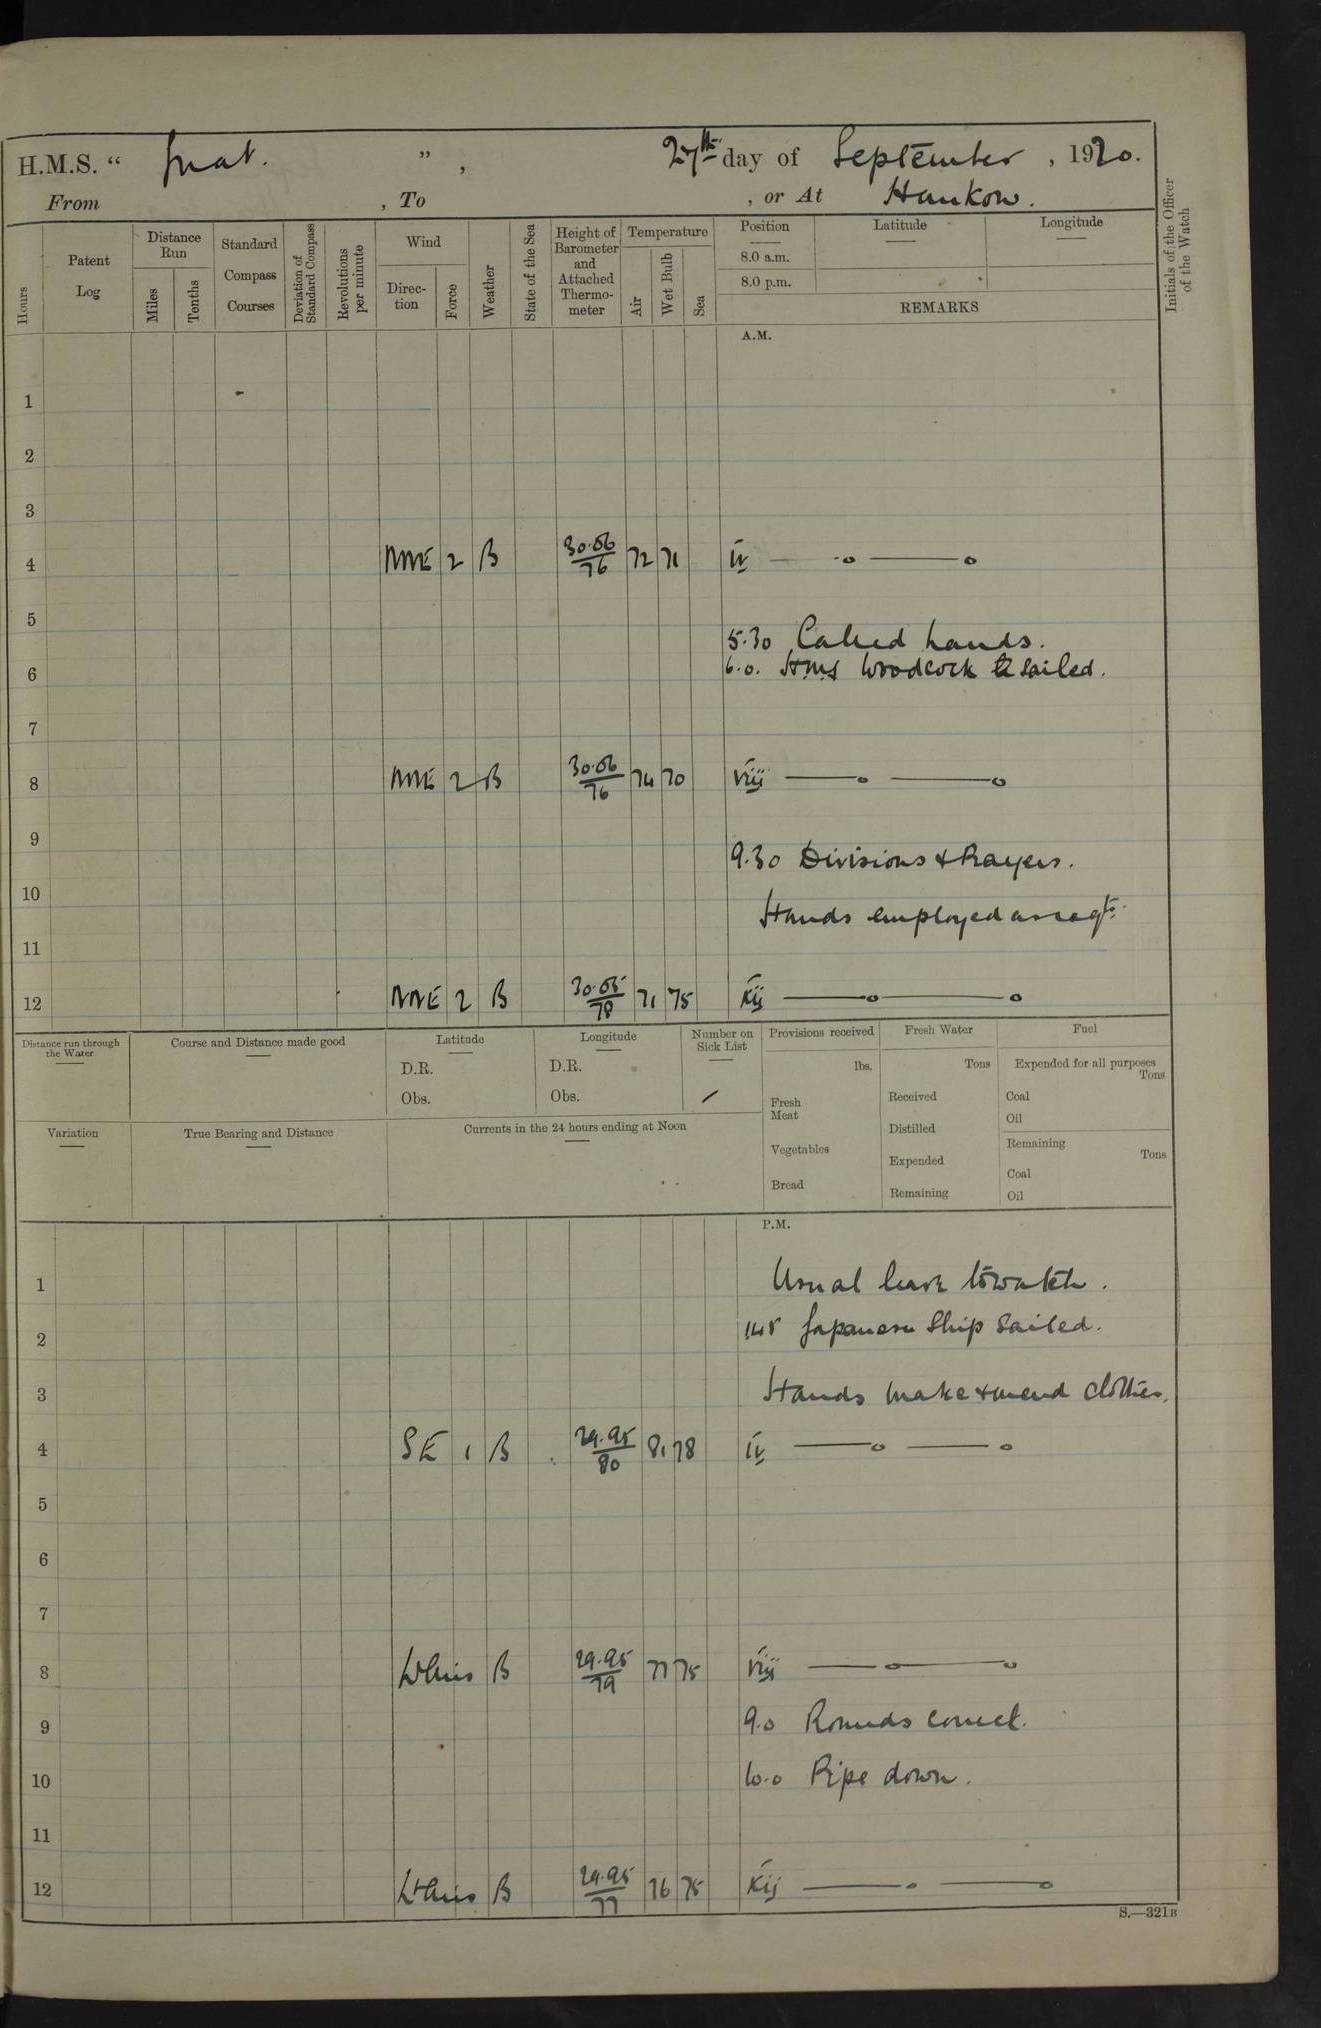 H.M.S. “ Gnat. ” ,
27th day of September , 1920.
From , To , or At Hankow.
Hours
Patent Log
Distance Run
Miles
Tenths
Standard Compass Courses
Deviation of Standard Compass
Revolutions per minute
Wind
Direc-tion
Force
Weather
State of the Sea
Height of Barometer and Attached Thermo-meter
Temperature
Air
Wet Bulb
Sea
Position
8.0 a.m.
8.0 p.m.
Latitude
Longitude
REMARKS
Initials of the Officer of the Watch
A.M.
1
2
3
4 NNE 2 B 30.06/76 72 71 iv
5
5.30 Called hands.
6 6.0. HMS Woodcock sailed.
7
8 NNE 2 B 30.06/76 74 70 viij
9
9.30 Divisions & Prayers.
10
Hands employed as reqt.
11
12 NNE 2 B 30.05/78 71 75 xij
Distance run through the Water
Course and Distance made good
Latitude
D.R.
Obs.
Longitude
D.R.
Obs.
Number on Sick List
/
Provisions received
lbs.
Fresh Meat
Vegetables
Bread
Fresh Water
Tons
Received
Distilled
Expended
Remaining
Fuel
Expended for all purposes
Tons
Coal
Oil
Remaining
Tons
Coal
Oil
Variation
True Bearing and Distance
Currents in the 24 hours ending at Noon
P.M.
1 Usual leave to watch.
2 145 Japanese Ship Sailed.
3 Hands make & mend clothes.
4 SE 1 B 29.95/80 81 78 iv
5
6
7
8 Lt Airs B 29.95/79 77 75 viij
9 9.0 Rounds correct.
10 10.0 Pipe down.
11
12 Lt Airs B 29.95/77 76 75 xij
S.—321B